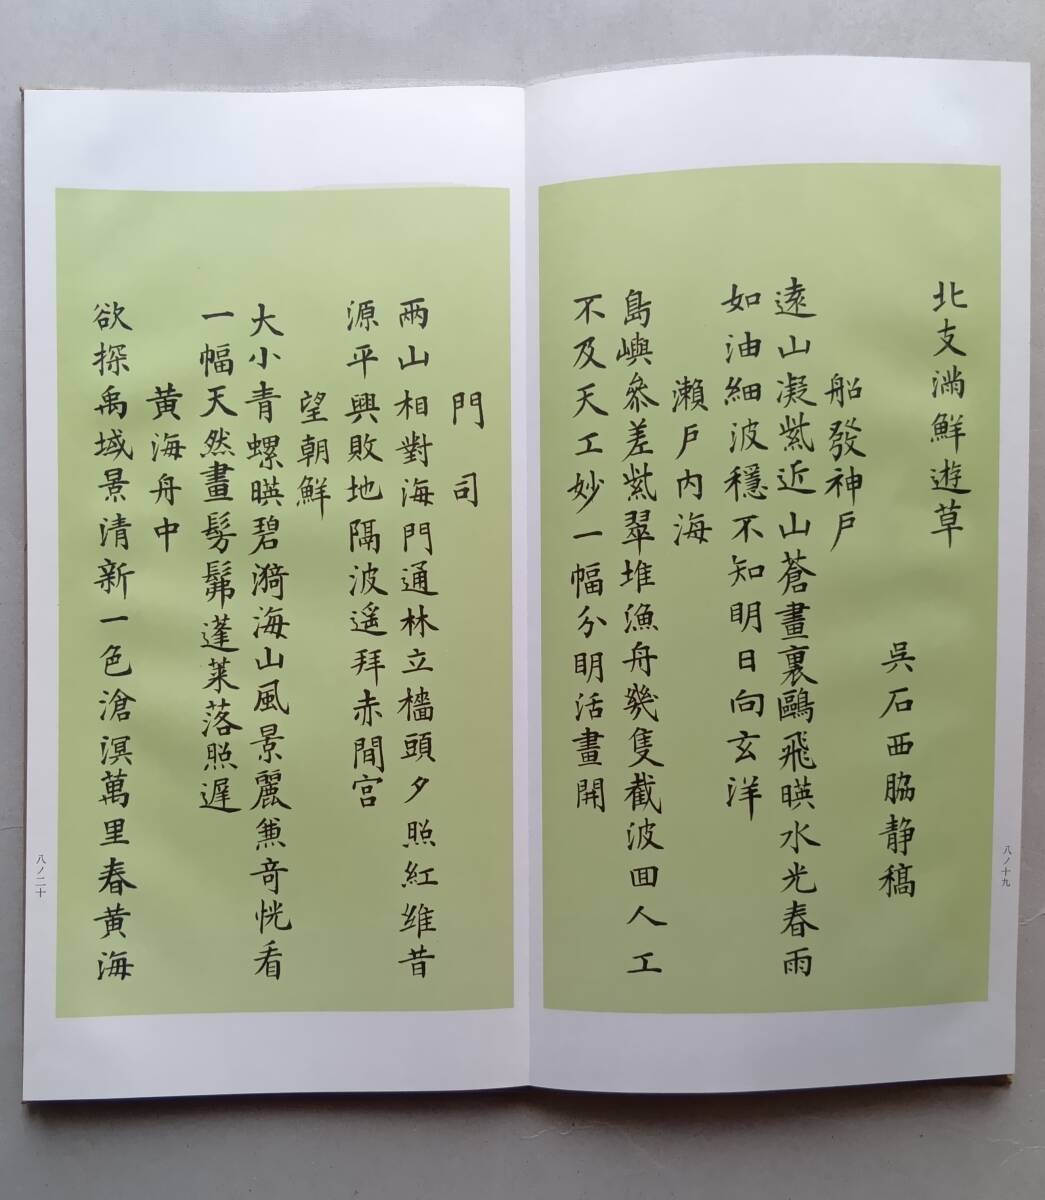 北支満鮮遊草
呉石西脇静稿
船發神戸
遠山凝紫近山蒼畫裏鷗飛暎水光春雨
如油細波穏不知明日向玄洋
瀬戸内海
島嶼参差紫翠堆漁舟幾隻截波回人工
不及天工妙一幅分明活畫開
八ノ十九
門司
兩山相對海門通林立檣頭夕照紅維昔
源平興敗地隔波遥拜赤間宮
望朝鮮
大小青螺暎碧漪海山風景麗兼奇恍看
一幅天然畫髣髴蓬莱落照遲
黄海舟中
欲探禹域景清新一色滄溟萬里春黄海
八ノ二十